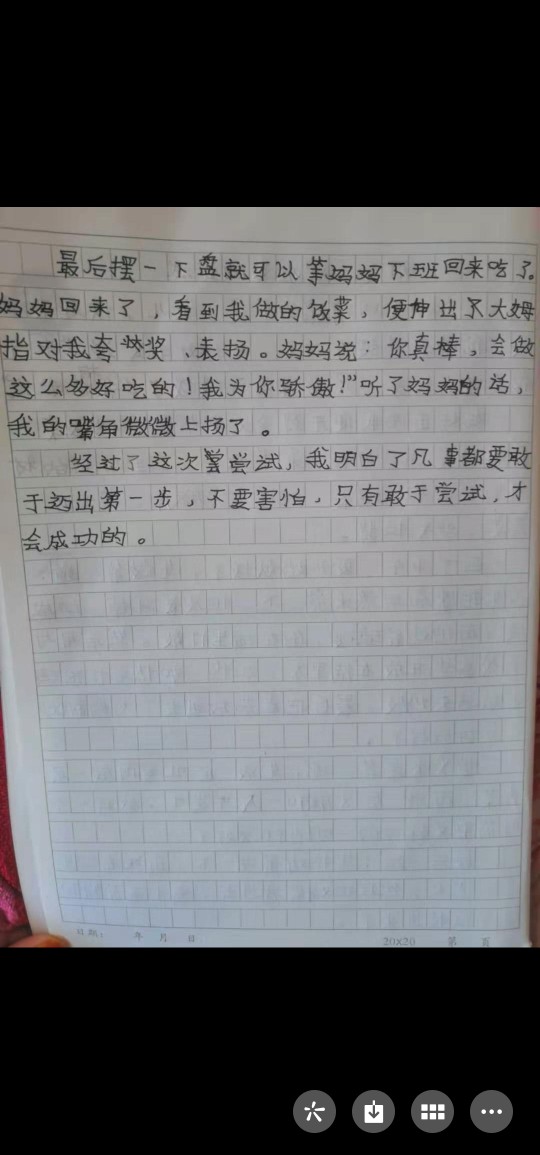 最后摆一下盘就可以等妈妈下班回来吃了。
妈妈回来了，看到我做的饭菜，便伸出了大姆
指对我夸奖、表扬。妈妈说：你真棒，会做
这么多好吃的！我为你骄傲！”听了妈妈的话，
我的嘴角微微上扬了。
经过了这次尝试，我明白了凡事都要敢
于迈出第一步，不要害怕，只有敢于尝试，才
会成功的。
日期： 年 月 日 20X20 第 页